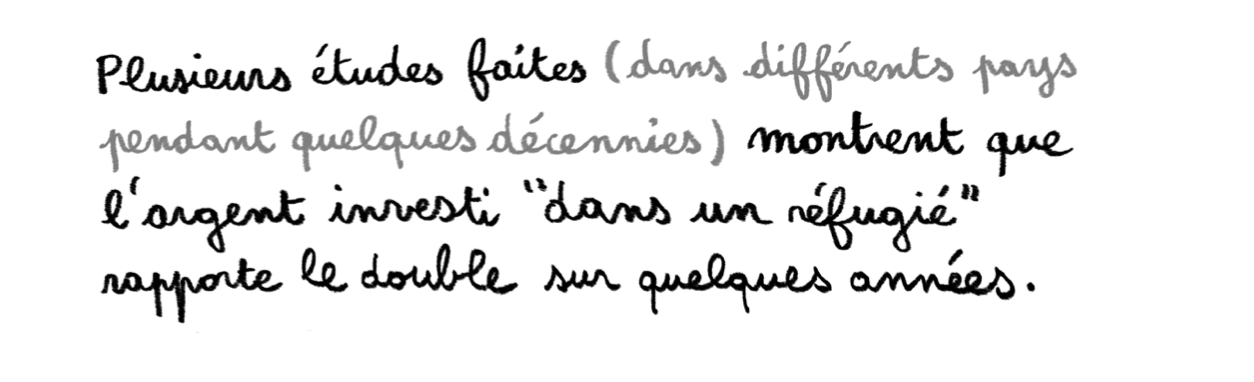 Plusieurs études faites (dans différents pays
pendant quelques décennies) montrent que
l'argent investi "dans un réfugié"
rapporte le double sur quelques années.